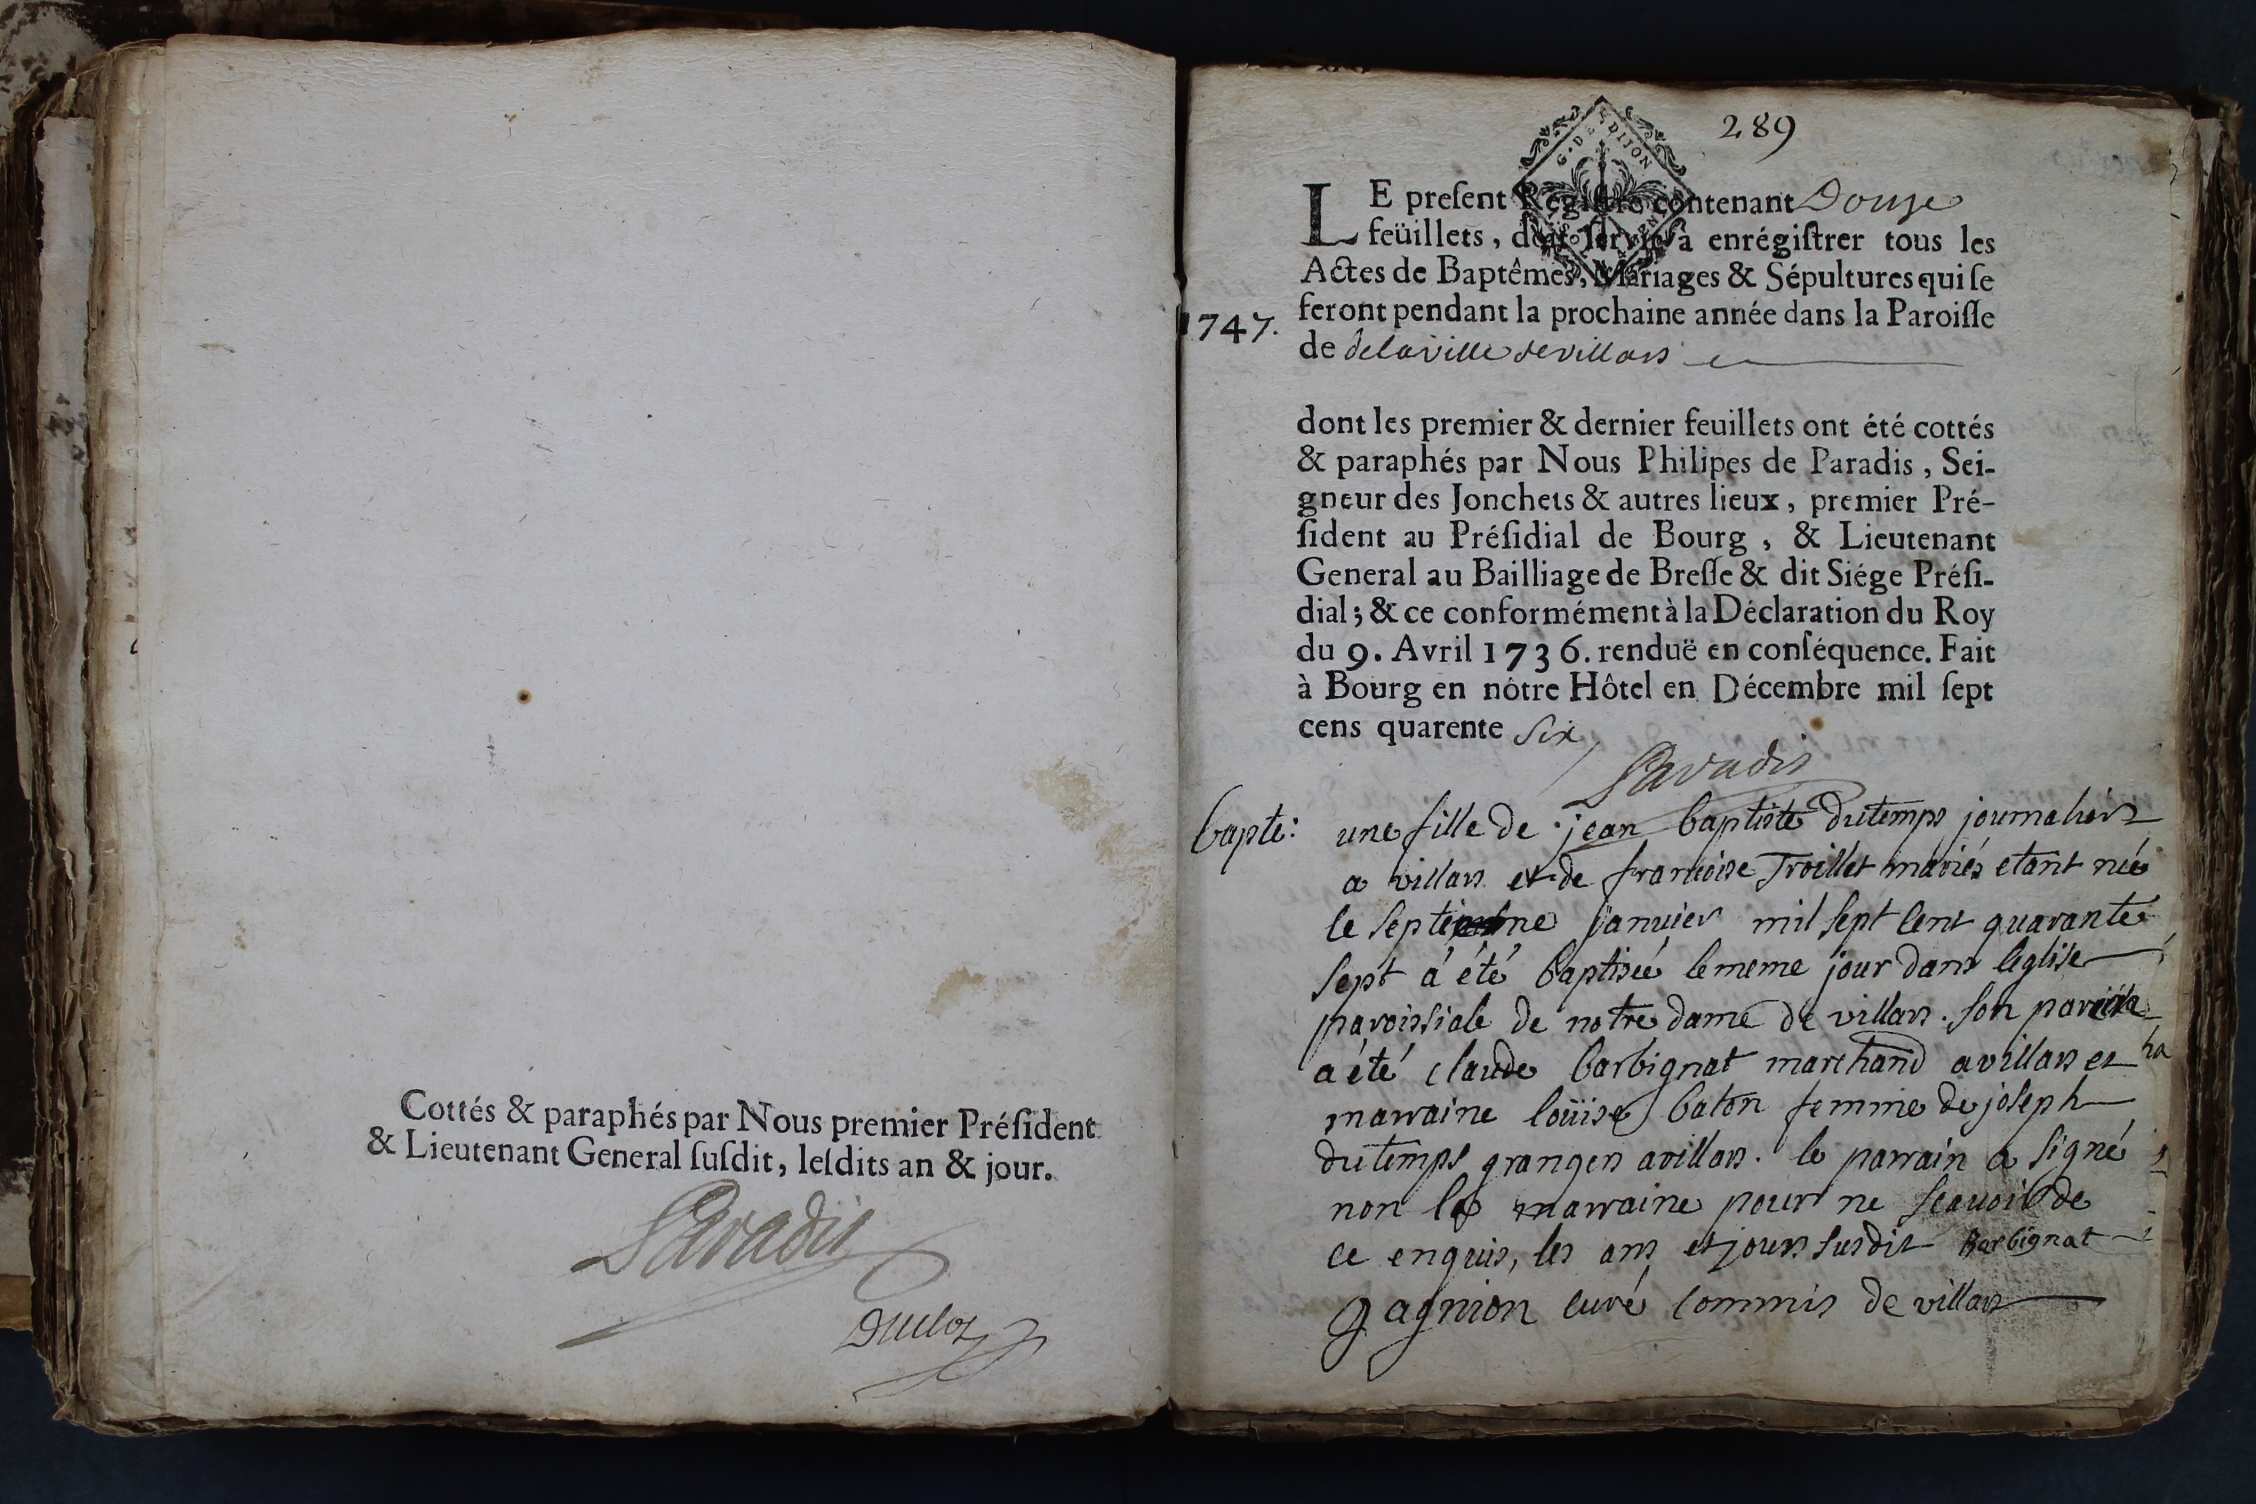 Cottés & paraphés par Nous premier Préſident
& Lieutenant General ſuſdit, leſdits an & jour.
Paradis
Duclos
289
G. DE DIJON
LE preſent Regiſtre contenant Douze
feüillets, doit ſervir à enrégiſtrer tous les
Actes de Baptêmes, Mariages & Sépultures qui ſe
feront pendant la prochaine année dans la Paroiſſe
1747.
de delaville de villars
dont les premier & dernier feuillets ont été cottés
& paraphés par Nous Philipes de Paradis, Sei-
gneur des Jonchets & autres lieux, premier Pré-
ſident au Préſidial de Bourg, & Lieutenant
General au Bailliage de Breſſe & dit Siége Préſi-
dial; & ce conformément à la Déclaration du Roy
du 9. Avril 1736. renduë en conſéquence. Fait
à Bourg en nôtre Hôtel en Décembre mil ſept
cens quarente Six
Paradis
bapte: une fille de jean baptiste dutemps journaliers
a villars et de francoise Troillet mariés etant née
le septieme janvier mil sept cent quarante
sept a été baptisée le meme jour dans leglise
paroissiale de notre dame de villars. son
a été claude barbignat marchand a villars et
marraine loüise baton femme de joseph
dutemps granger a villars. le parrain a signé
non la marraine pour ne scavoir de
ce enquis, les ans et jours susdit Barbignat
gagnion curé commis de villars